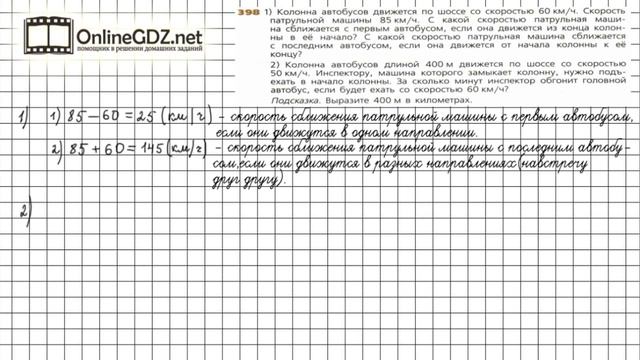 OnlineGDZ.net
помощник в решении домашних заданий
398 1) Колонна автобусов движется по шоссе со скоростью 60 км/ч. Скорость
патрульной машины 85 км/ч. С какой скоростью патрульная маши-
на сближается с первым автобусом, если она движется из конца колон-
ны в её начало? С какой скоростью патрульная машина сближается
с последним автобусом, если она движется от начала колонны к её
концу?
2) Колонна автобусов длиной 400 м движется по шоссе со скоростью
50 км/ч. Инспектору, машина которого замыкает колонну, нужно подъ-
ехать в начало колонны. За сколько минут инспектор обгонит головной
автобус, если будет ехать со скоростью 60 км/ч?
Подсказка. Выразите 400 м в километрах.
1) 1) 85 – 60 = 25 (км/ч) – скорость сближения патрульной машины с первым автобусом,
если они движутся в одном направлении.
2) 85 + 60 = 145 (км/ч) – скорость сближения патрульной машины с последним автобу-
сом, если они движутся в разных направлениях (навстречу
друг другу).
2)